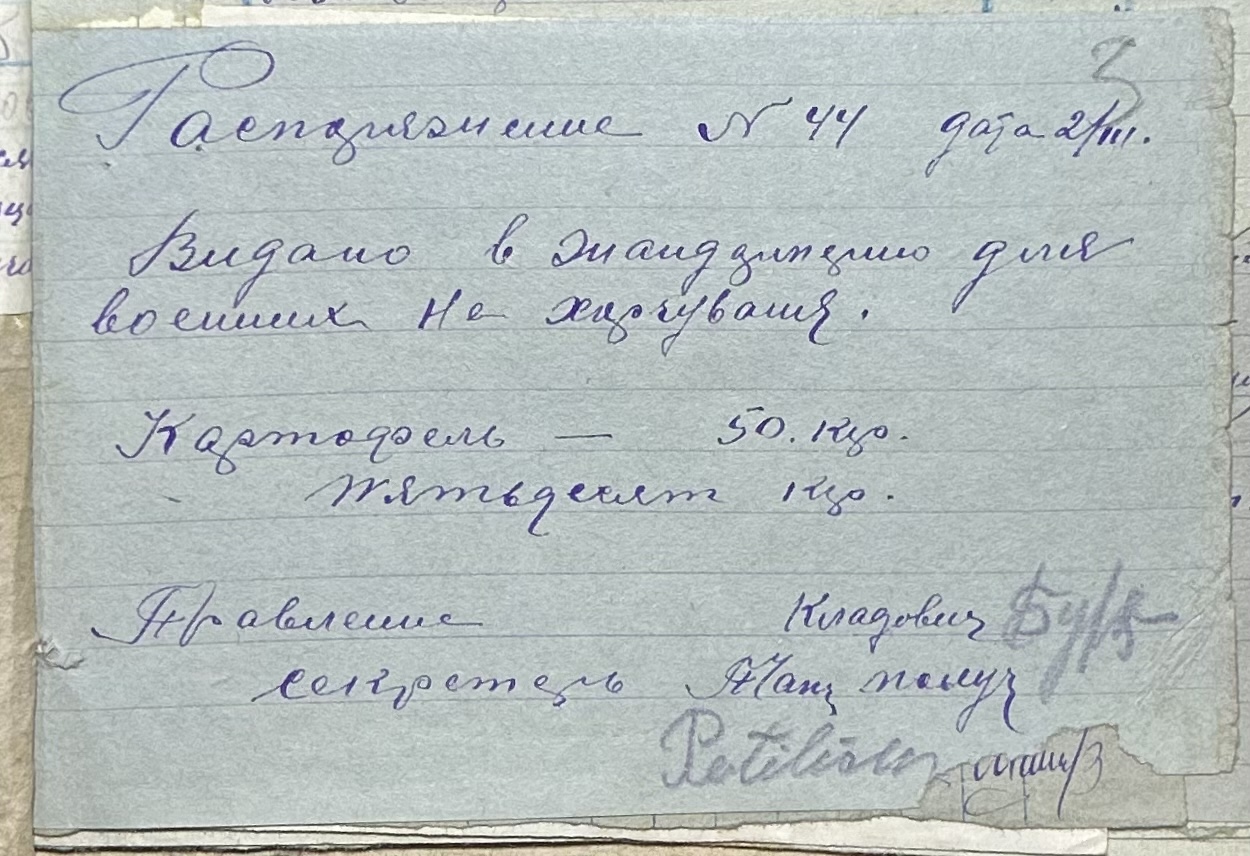 3
Распоряжение N 44 дата 2/III.
Видано в жандармерию для
военних на харчування.
Картофель — 50. кгр.
Пятьдесят кгр.
Правление Кладовщ
секретарь получ